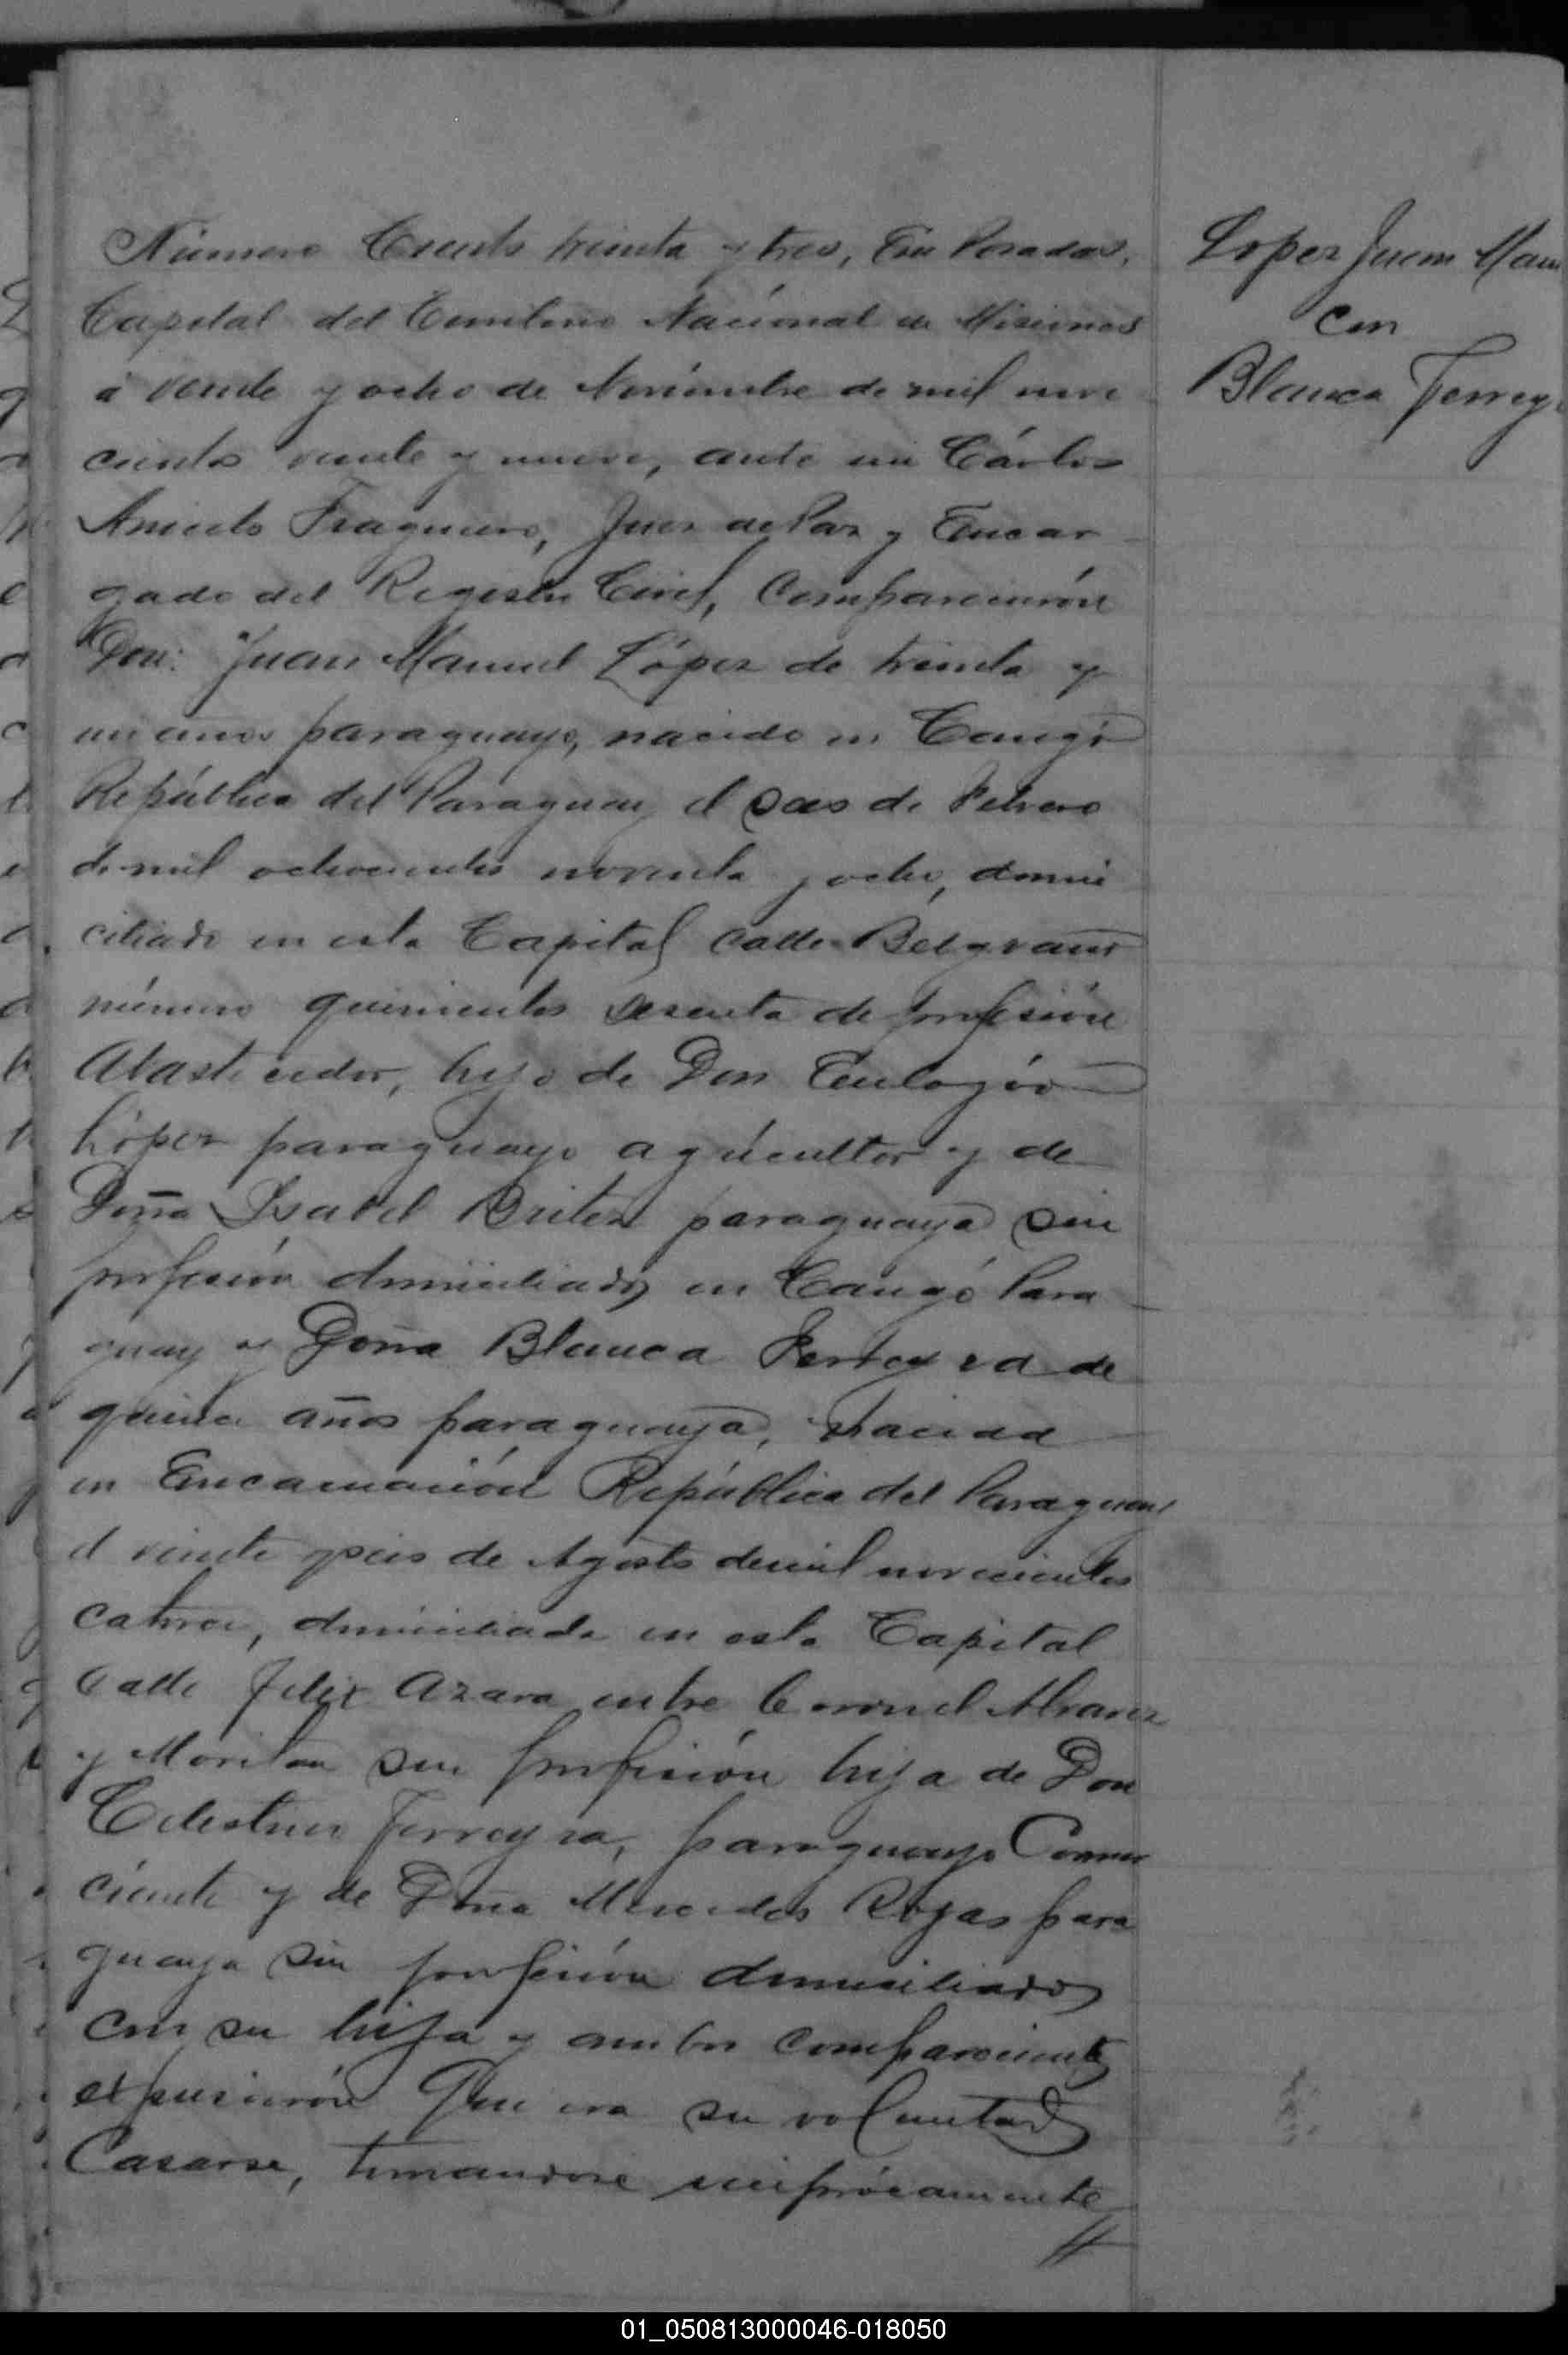 Número Ciento treinta y tres, En Posadas,
Capital del Territorio Nacional de Misiones
á veinte y ocho de Noviembre de mil nove
cientos veinte y nueve, ante mi Cárlos
Aniceto Fraguero, Juez de Paz y Encar
gado del Registro Civil, Comparecieron
Don: Juan Manuel López de treinta y
un años paraguayo, nacido en Cangó
República del Paraguay el seis de Febrero
de mil ochocientos noventa y ocho, domi
ciliado en esta Capital calle Belgrano
número quinientos sesenta de profesión
Abastecedor, hijo de Don Eulogio
López paraguayo agricultor y de
Doña Isabel Britez paraguaya sin
profesión domiciliados en Cangó Para
guay y Doña Blanca Ferreyra de
quince años paraguaya, nacida
en Encarnación República del Paraguay
el veinte y seis de Agosto de mil novecientos
catorce, domiciliada en esta Capital
Calle Felix Azara entre Coronel Alvarez
y sin profesión hija de Don
Celestino Ferreyra, paraguayo Comer
ciante y de Doña Mercedes Rojas para
guaya sin profesión domiciliados
con su hija y ambos comparecientes
expusieron Que era su voluntad
Casarse, tomandose reciprócamente
//
Lopez Juan Man
con
Blanca Ferrey
01_050813000046-018050